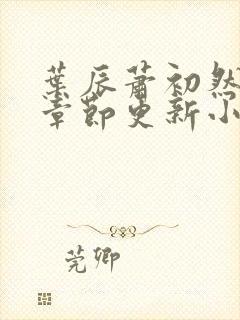 葉辰蕭初然
章節更新小
莞卿